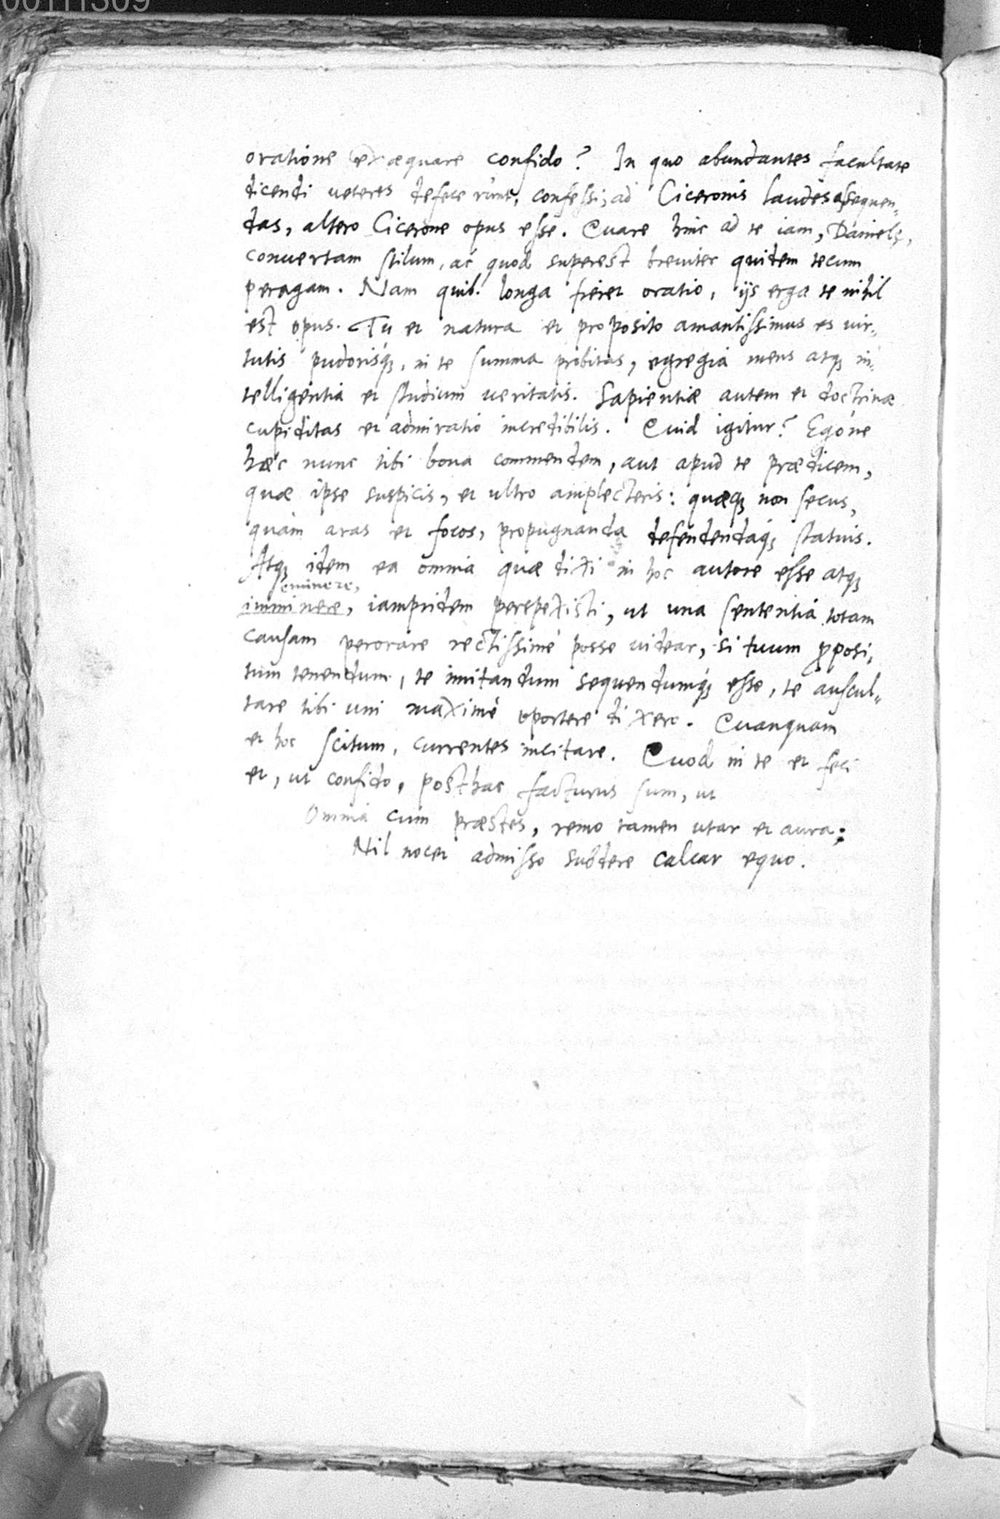 00111309
oratione exæquare confido? In quo abundantes facultate
dicendi veteres defecerunt, confessi, ad Ciceronis laudes assequen-
das, altero Cicerone opus esse. Quare hinc ad te iam, Daniel,
convertam stilum, ac quod superest breviter quidem tecum
peragam. Nam quib. longa fieret oratio, ijs erga te nihil
est opus. Tu et natura et proposito amantissimus es vir-
tutis pudorisq;, in te summa probitas, egregia mens atq; in-
telligentia et studium veritatis. Sapientiæ autem et doctrinæ
cupiditas et admiratio incredibilis. Quid igitur? Egóne
hæc nunc tibi bona commendem, aut apud te prædicem,
quæ ipse suspicis, et ultro amplecteris: quæq; non secus,
quàm aras et focos, propugnanda defendendaq; statuis.
Atq; idem ea omnia quæ dixi in hoc autore esse atq;
eminere,
imminere, iampridem perspexisti, ut una sententia totam
causam perorare rectissimè posse videar, si tuum proposi-
tum tenendum, te imitandum sequendumq; esse, te auscul-
tare tibi uni maximè oportere dixero. Quanquam
et hoc scitum, currentes incitare. Quod in te et feci
et, ut confido, posthac facturus sum, ut
Omnia cum præstes, remo tamen utar et aura:
Nil nocet admisso subdere calcar equo.